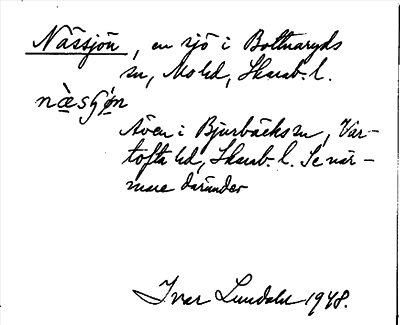 Nässjön, en sjö i Bottnaryds
sn, Mo hd, Skarab. l.
næ̀sʃǿn
Även i Bjurbäcks sn, Var-
tofta hd, Skarab. l. Se när-
mare därunder
Ivar Lundahl 1948.